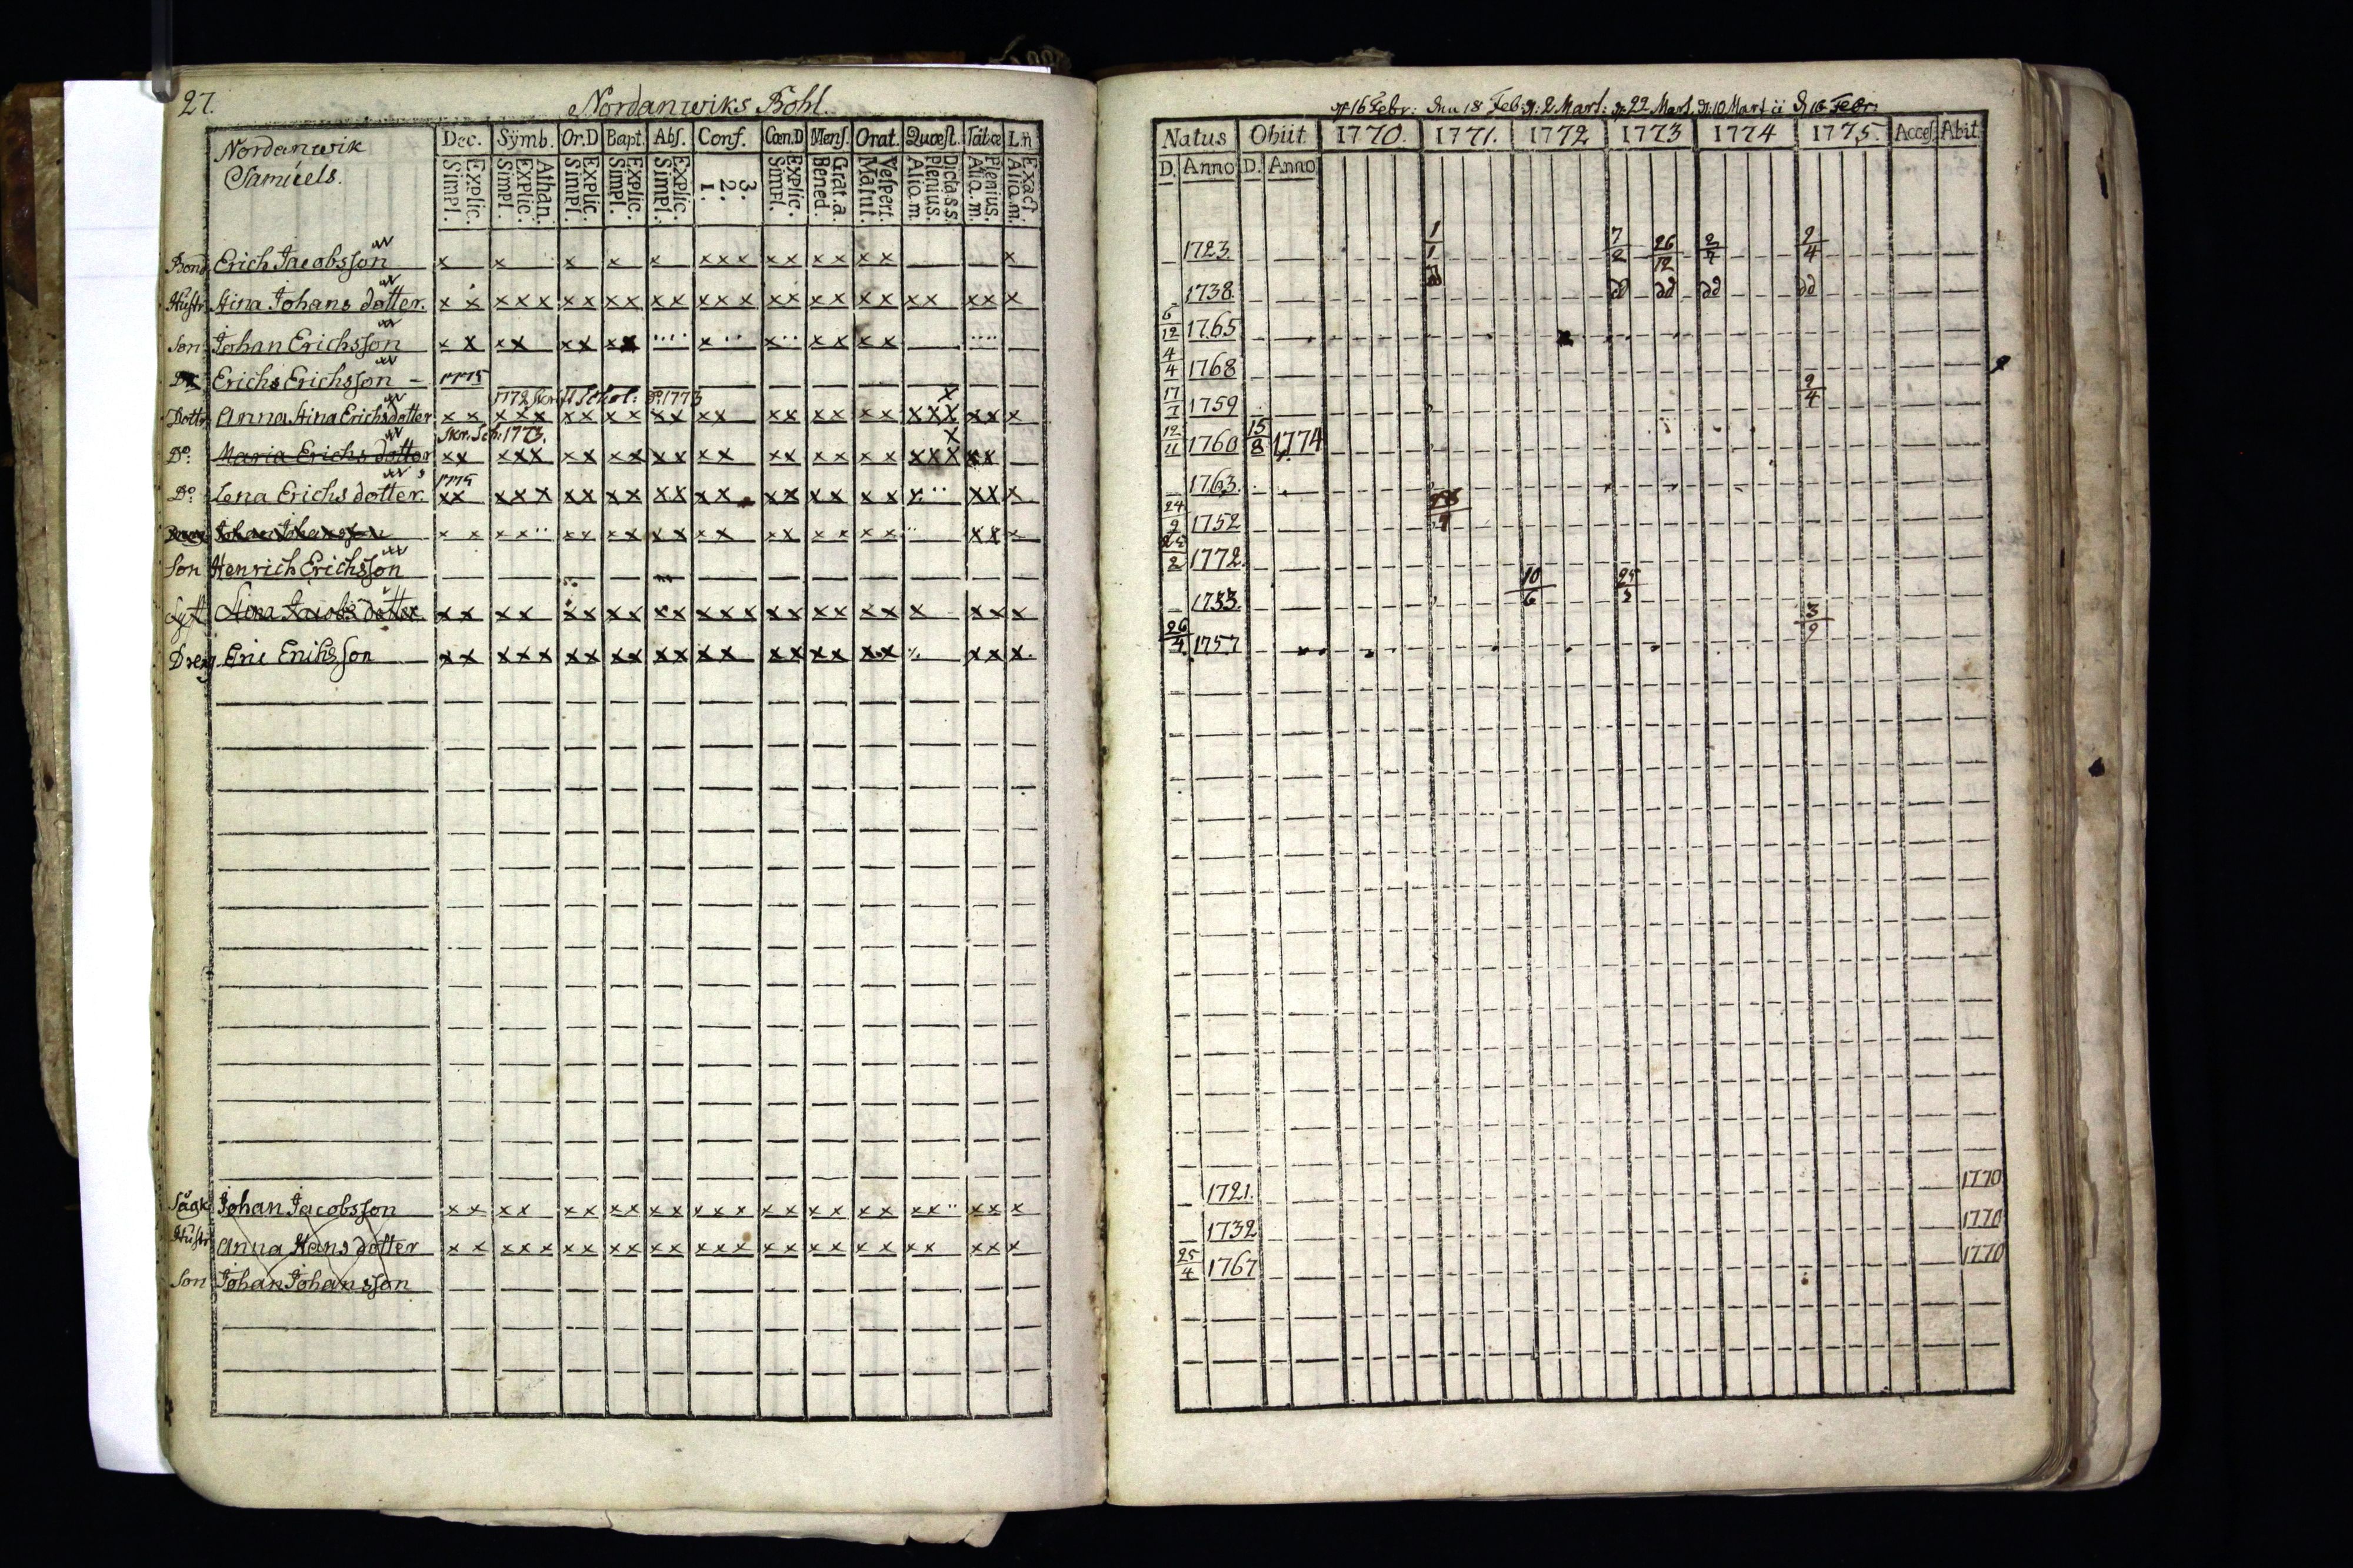 27.
Nordanwiks Bohl.
Nordanwik
Samuels.
Dec. Symb. Or.D Bapt. Abs. Conf. Cœn.D Mens. Orat. Quæst. Tabæ L.n
Simpl. Explic. Simpl. Explic. Athan. Simpl. Explic. Simpl. Explic. Simpl. Explic. 1. 2. 3. Simpl. Explic. Bened. Grat.a Matut. Vespert. Aliq.m Plenius. Dicta s.s. Aliq.m Plenius. Aliq.m Exact
Bond Erich Jacobsson x x x x x xxx xx xx xx x
Hustr Stina Johans dotter. xx xxx xx xx xx xxx xx xx xx xx xx x
Son Johan Erichsson xx xx xx xx x x xx xx
Erichs Erichsson 1775
1772 1773
Dottr Anna Stina Erichsdotter xx xxx xx xx xx xx xx xx xx xxx xx x
1773.
Do: Maria Erichs dotter xx xxx xx xx xx xx xx xx xx xxx xx
1775
Do Lena Erichs dotter. xx xxx xx xx xx xx xx xx xx xx x
Johan Johansson xx xx xx xx xx xx xx xx xx xx x
Son Henrich Erichsson
Jacobs dotter xx xx xx xx xx xxx xx xx xx x xx x
Dreng Eric Erichsson xx xxx xx xx xx xx xx xx xx xx x
Johan Jacobsson xx xx xx xx xx xxx xx xx xx xx xx x
Hustr Anna Hans dotter xx xxx xx xx xx xxx xx xx xx xx xx x
Son Johan Johansson
16 Febr: 18 Feb: 2 Mart: 22 Mart. 10 Mart 16 Febr:
Natus Obiit 1770. 1771. 1772 1773 1774 1775. Acces. Abit
D. Anno D. Anno
1723 1/1 7/2 26/12 2/4
1738 dd dd dd dd
6/12 1765
4/4 1768
17/7 1759 2/4
12/11 1760 15/8 1774
1763.
24/9 1752
25/2 1772.
1733. 10/6
26/4 1757 3/9
1721. 1770
1732 1770
25/4 1767 1770